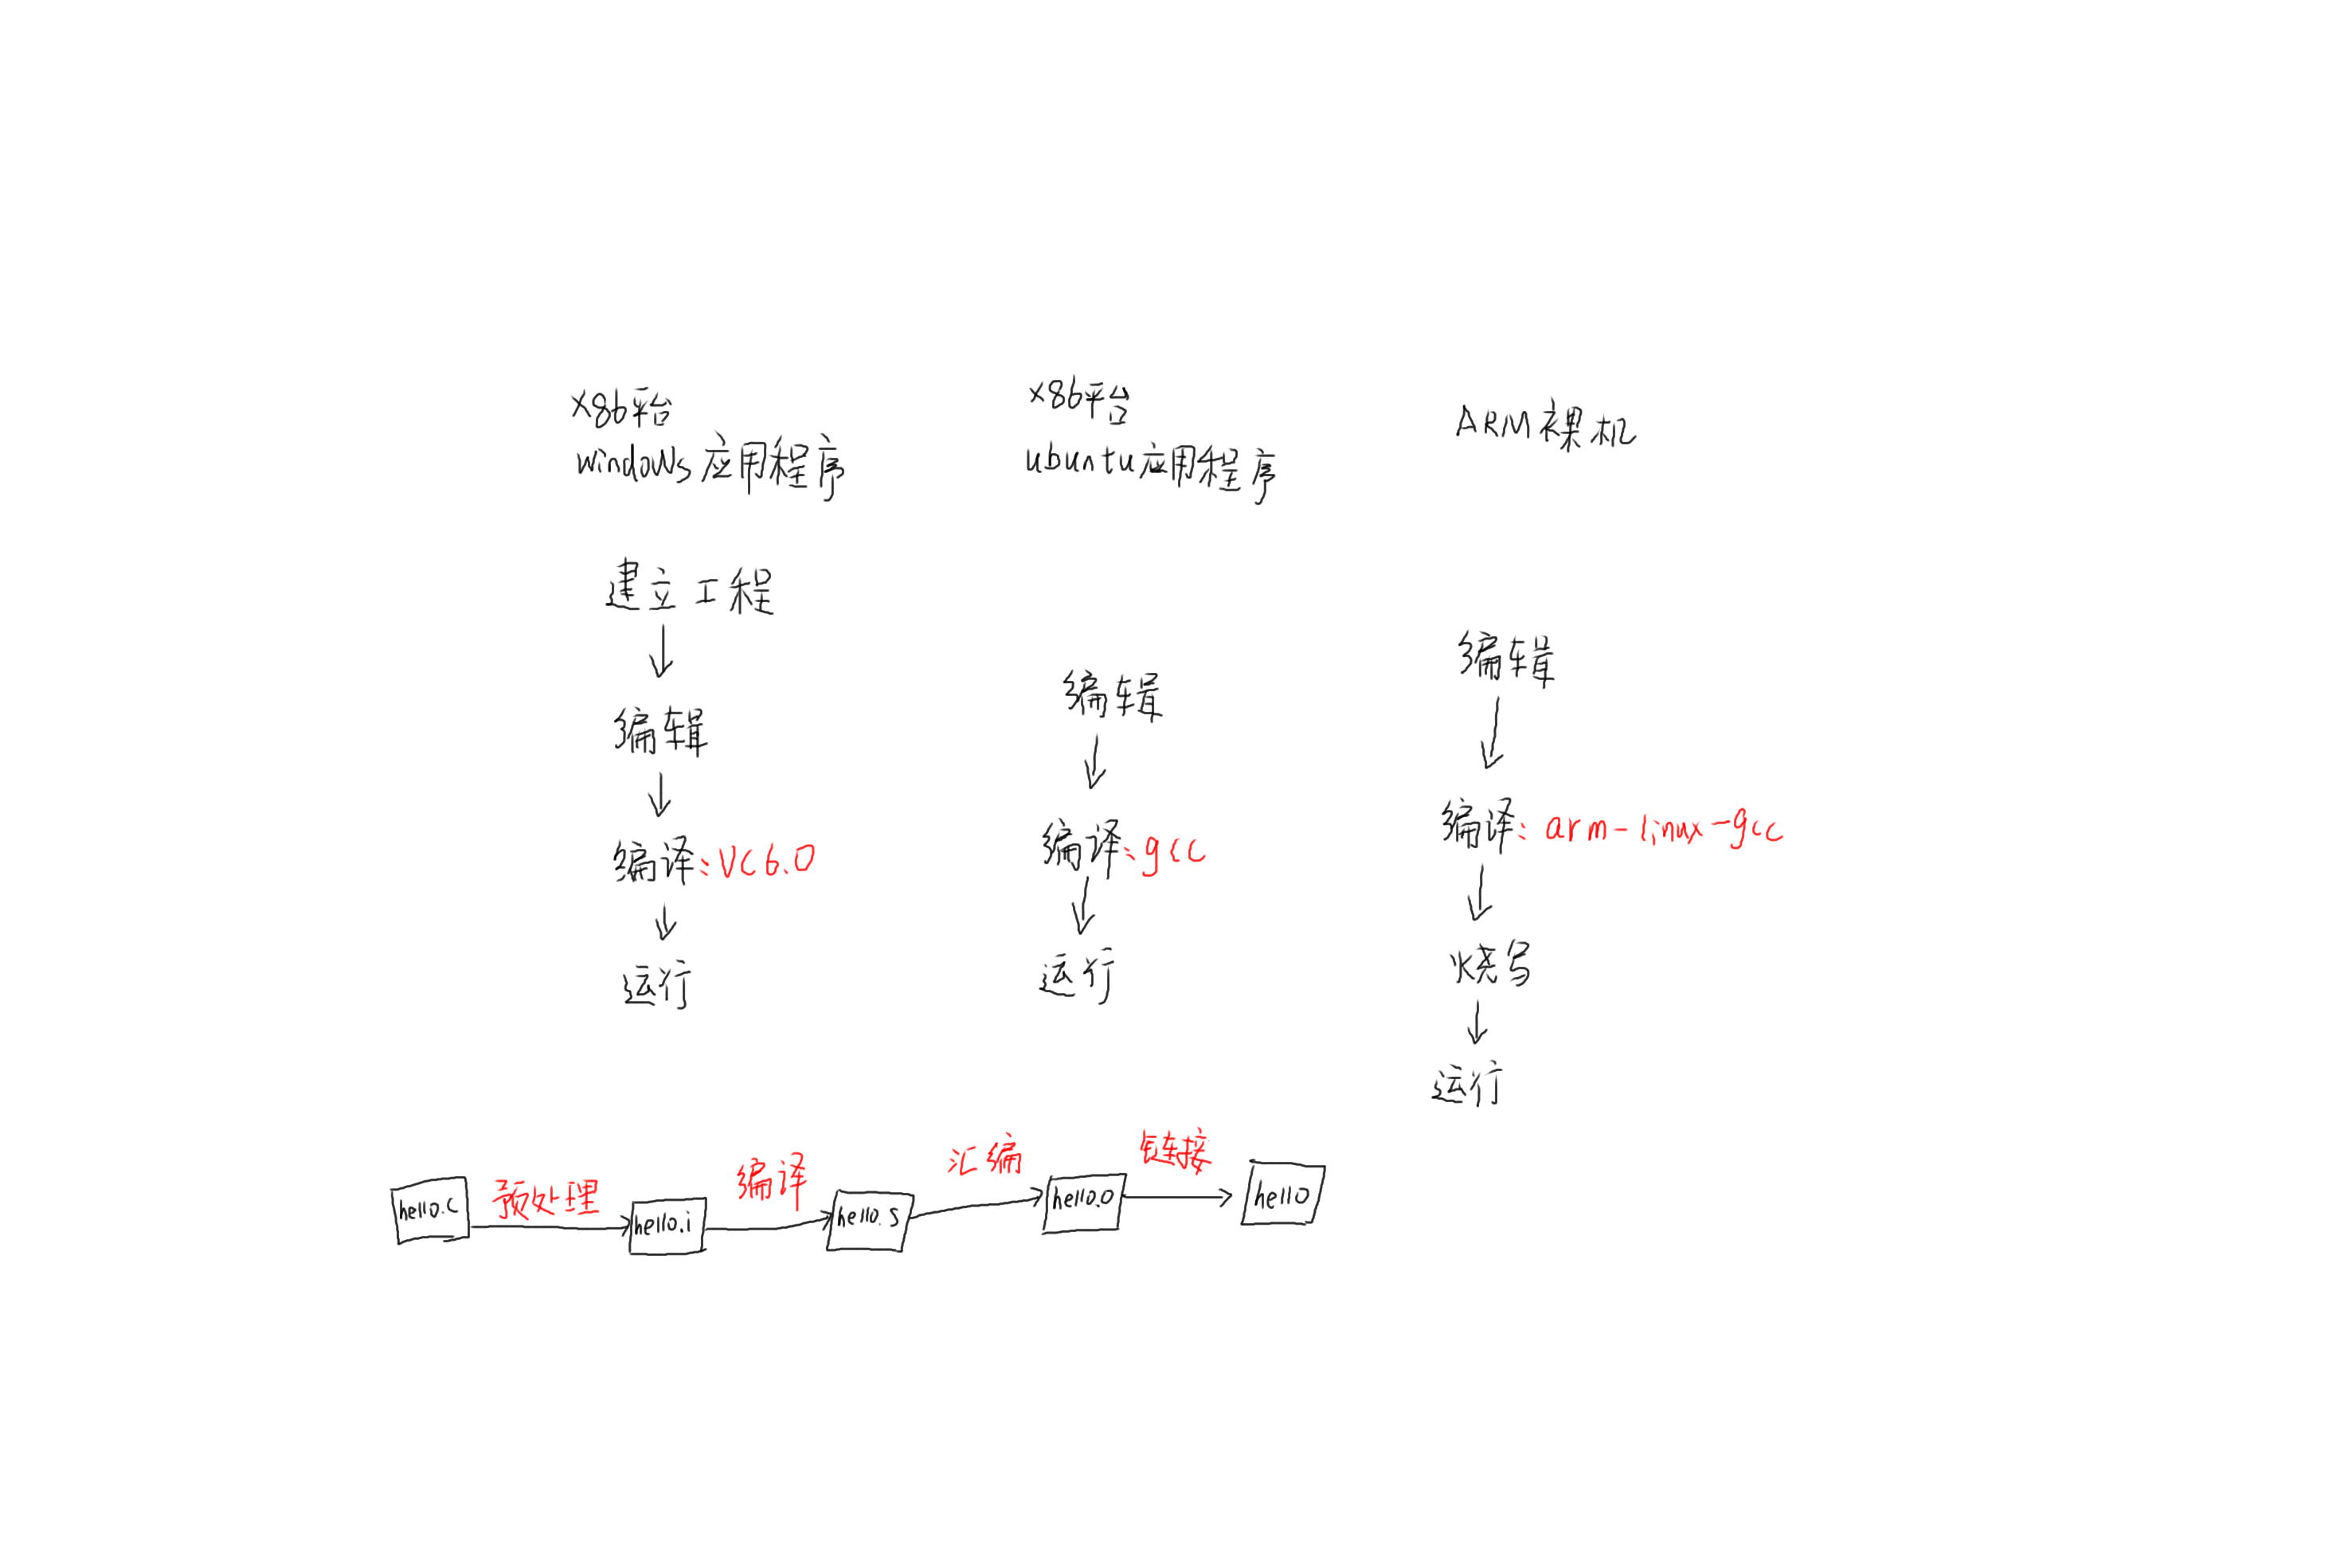 x86平台
windows应用程序
建立工程
编辑
编译:VC6.0
运行
x86平台
ubuntu应用程序
编辑
编译:gcc
运行
ARM裸机
编辑
编译:arm-linux-gcc
烧写
运行
hello.c
预处理
hello.i
编译
hello.s
汇编
hello.o
链接
hello